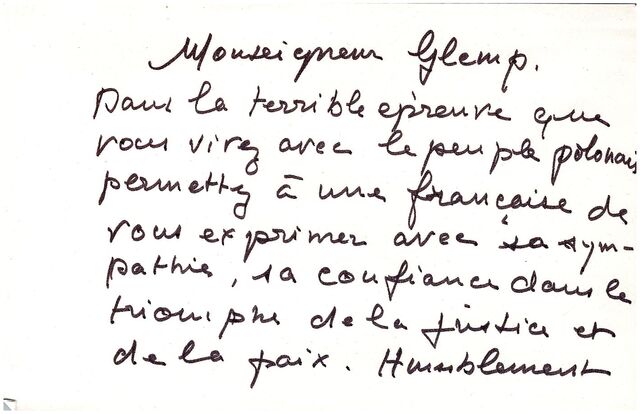 Monseigneur Glemp.
Dans la terrible épreuve que
vous vivez avec le peuple polonais
permettez à une française de
vous exprimer avec sa sym-
pathie, sa confiance dans le
triomphe de la justice et
de la paix. Humblement